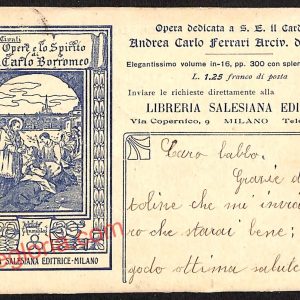 Civati
Opere e lo Spirito
di
Carlo Borromeo
SALESIANA EDITRICE-MILANO
Opera dedicata a S. E. il Card
Andrea Carlo Ferrari Arciv. d
Elegantissimo volume in-16, pp. 300 con splen
L. 1.25 franco di posta
Inviare le richieste direttamente alla
LIBRERIA SALESIANA EDI
Via Copernico, 9 MILANO Tele
Caro babbo.
Grazie d
toline che mi invia
ro che starai bene;
godo ottima salute